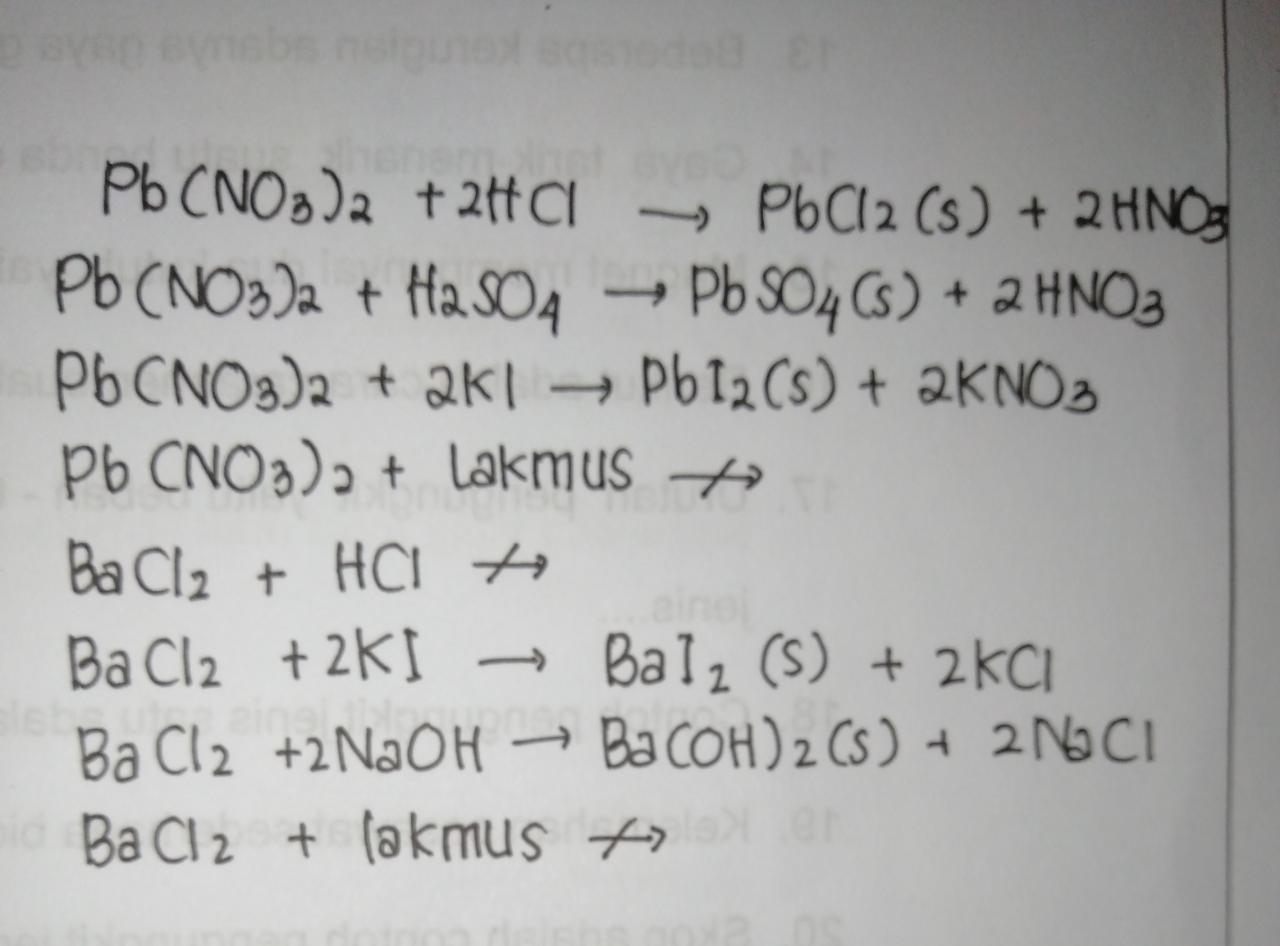 Pb(NO3)2 + 2HCl → PbCl2 (s) + 2HNO3
Pb(NO3)2 + H2SO4 → PbSO4(s) + 2HNO3
Pb(NO3)2 + 2KI → PbI2(s) + 2KNO3
Pb(NO3)2 + Lakmus ↛
BaCl2 + HCl ↛
BaCl2 + 2KI → BaI2 (s) + 2KCl
BaCl2 + 2NaOH → Ba(OH)2(s) + 2NaCl
BaCl2 + lakmus ↛